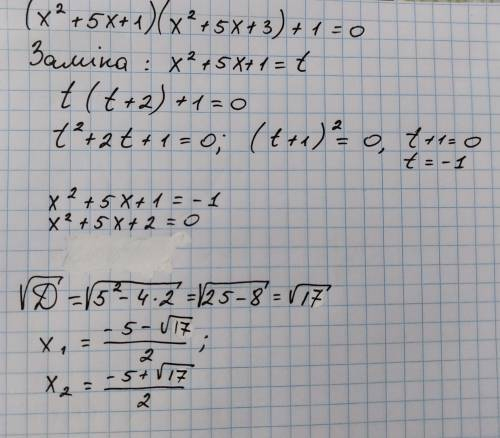 (x² + 5x + 1)(x² + 5x + 3) + 1 = 0
Заміна : x² + 5x + 1 = t
t (t + 2) + 1 = 0
t² + 2t + 1 = 0; (t + 1)² = 0, t + 1 = 0
t = -1
x² + 5x + 1 = -1
x² + 5x + 2 = 0
√D = √(5² - 4·2) = √(25 - 8) = √17
x₁ = (-5 - √17)/2 ;
x₂ = (-5 + √17)/2